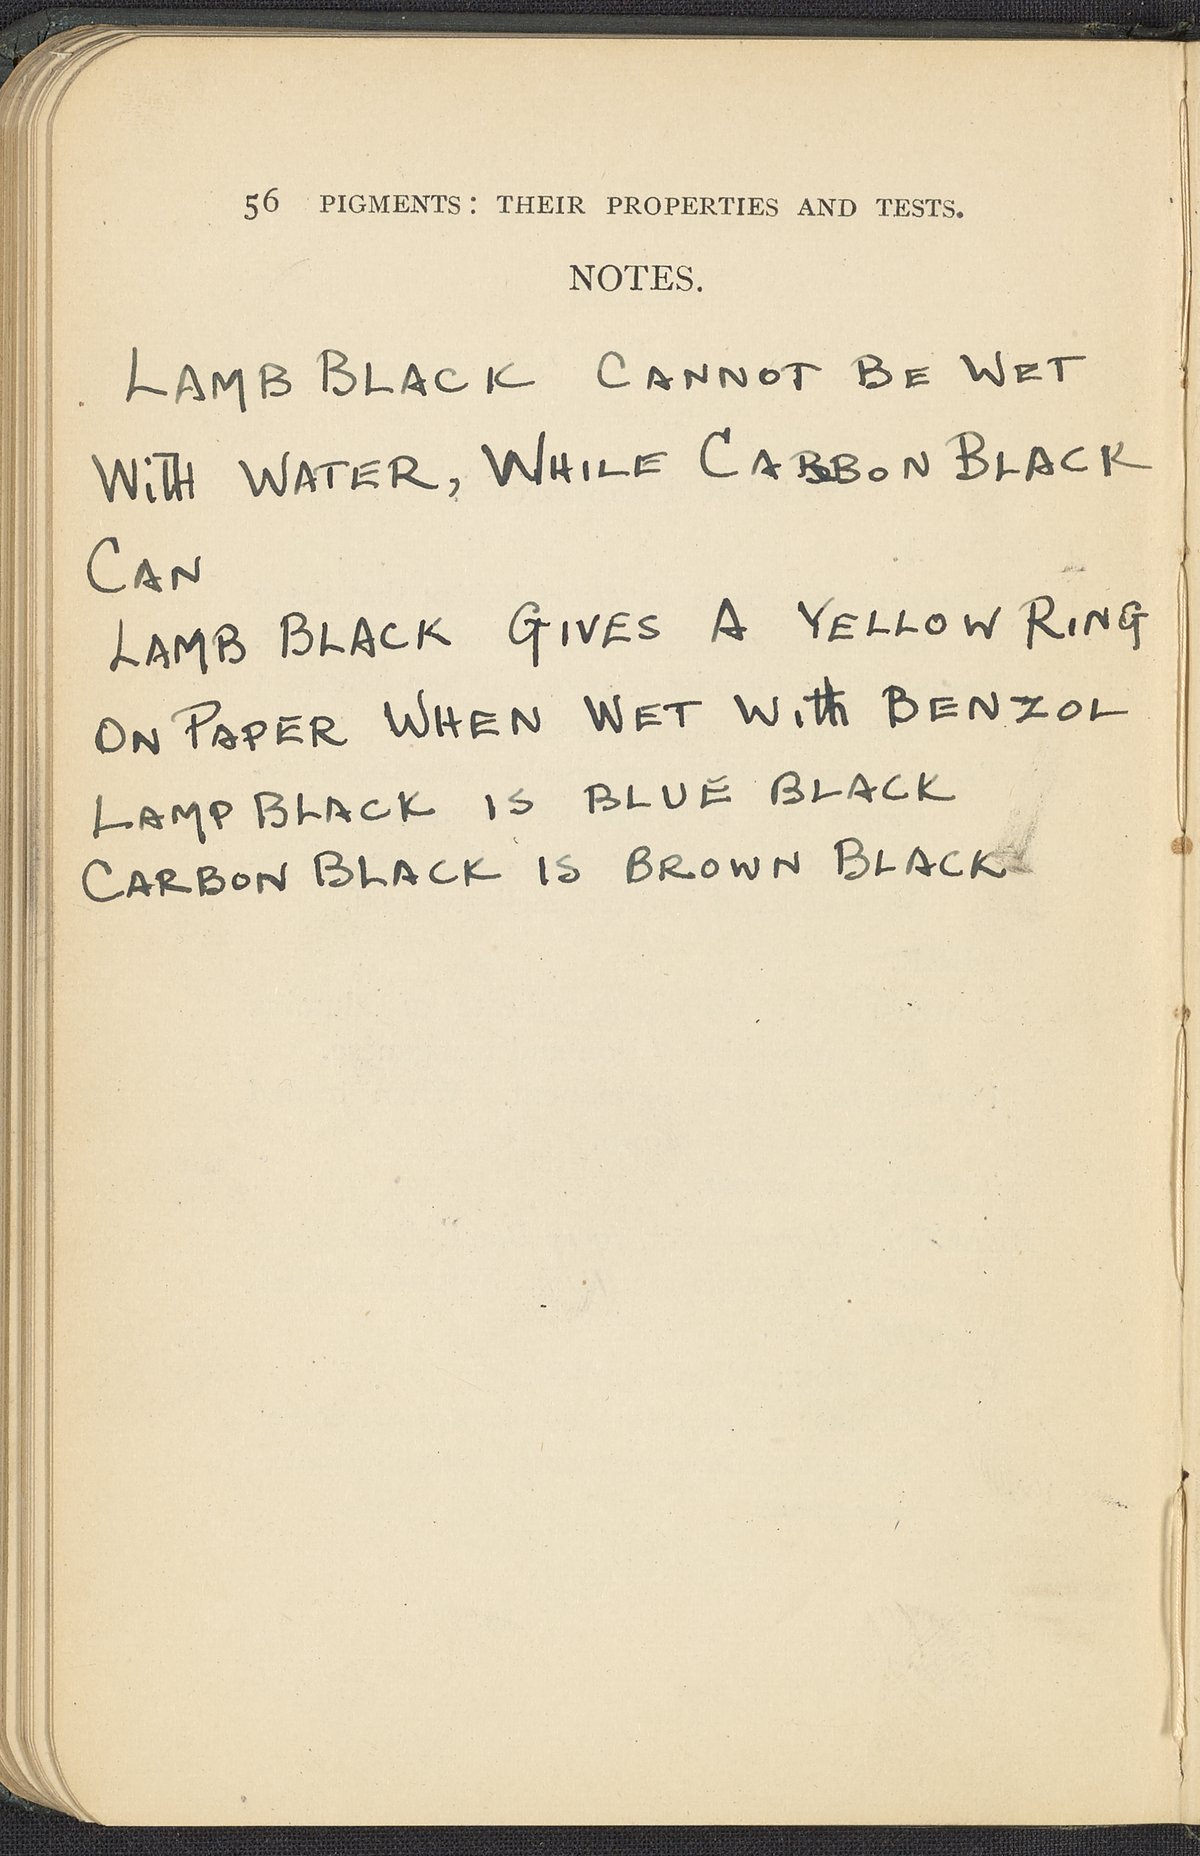 56 PIGMENTS: THEIR PROPERTIES AND TESTS.
NOTES.
LAMB BLACK CANNOT BE WET
WiTH WATER, WHILE CARBON BLACK
CAN
LAMB BLACK GIVES A YELLOW RiNG
ON PAPER WHEN WET With BENZOL
LAMP BLACK IS BLUE BLACK
CARBON BLACK IS BROWN BLACK